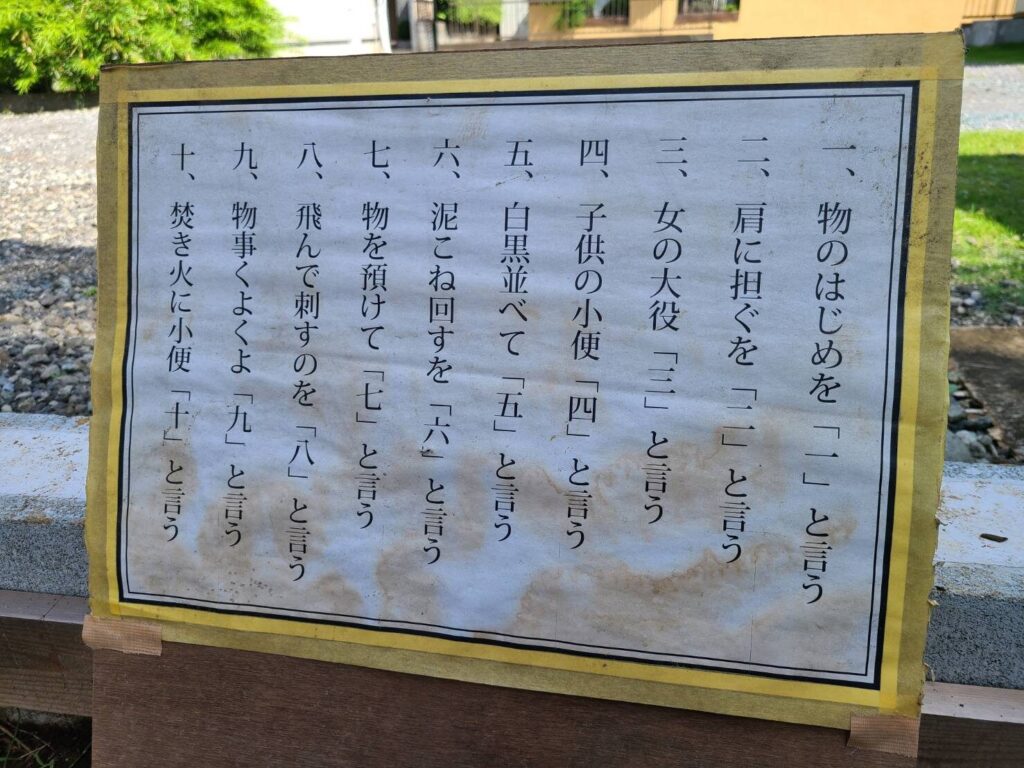 一、物のはじめを「一」と言う
二、肩に担ぐを「二」と言う
三、女の大役「三」と言う
四、子供の小便「四」と言う
五、白黒並べて「五」と言う
六、泥こね回すを「六」と言う
七、物を預けて「七」と言う
八、飛んで刺すのを「八」と言う
九、物事くよくよ「九」と言う
十、焚き火に小便「十」と言う